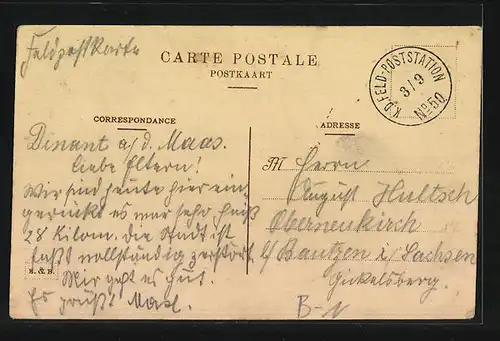 Feldpostkarte
CARTE POSTALE
POSTKAART
K.D. FELD-POSTSTATION
3/9
No 50
CORRESPONDANCE
ADRESSE
Dinant a/d. Maas.
Liebe Eltern!
Wir sind heute hier ein
gerückt es war sehr heiß
28 Kilom. die Stadt ist
fast vollständig zerstört
Mir geht es gut.
Es grüßt Max.
N. & B.
M Herrn
August Hultsch
Oberneukirch
b/ Bautzen i/Sachsen
Gickelsberg.
B-N